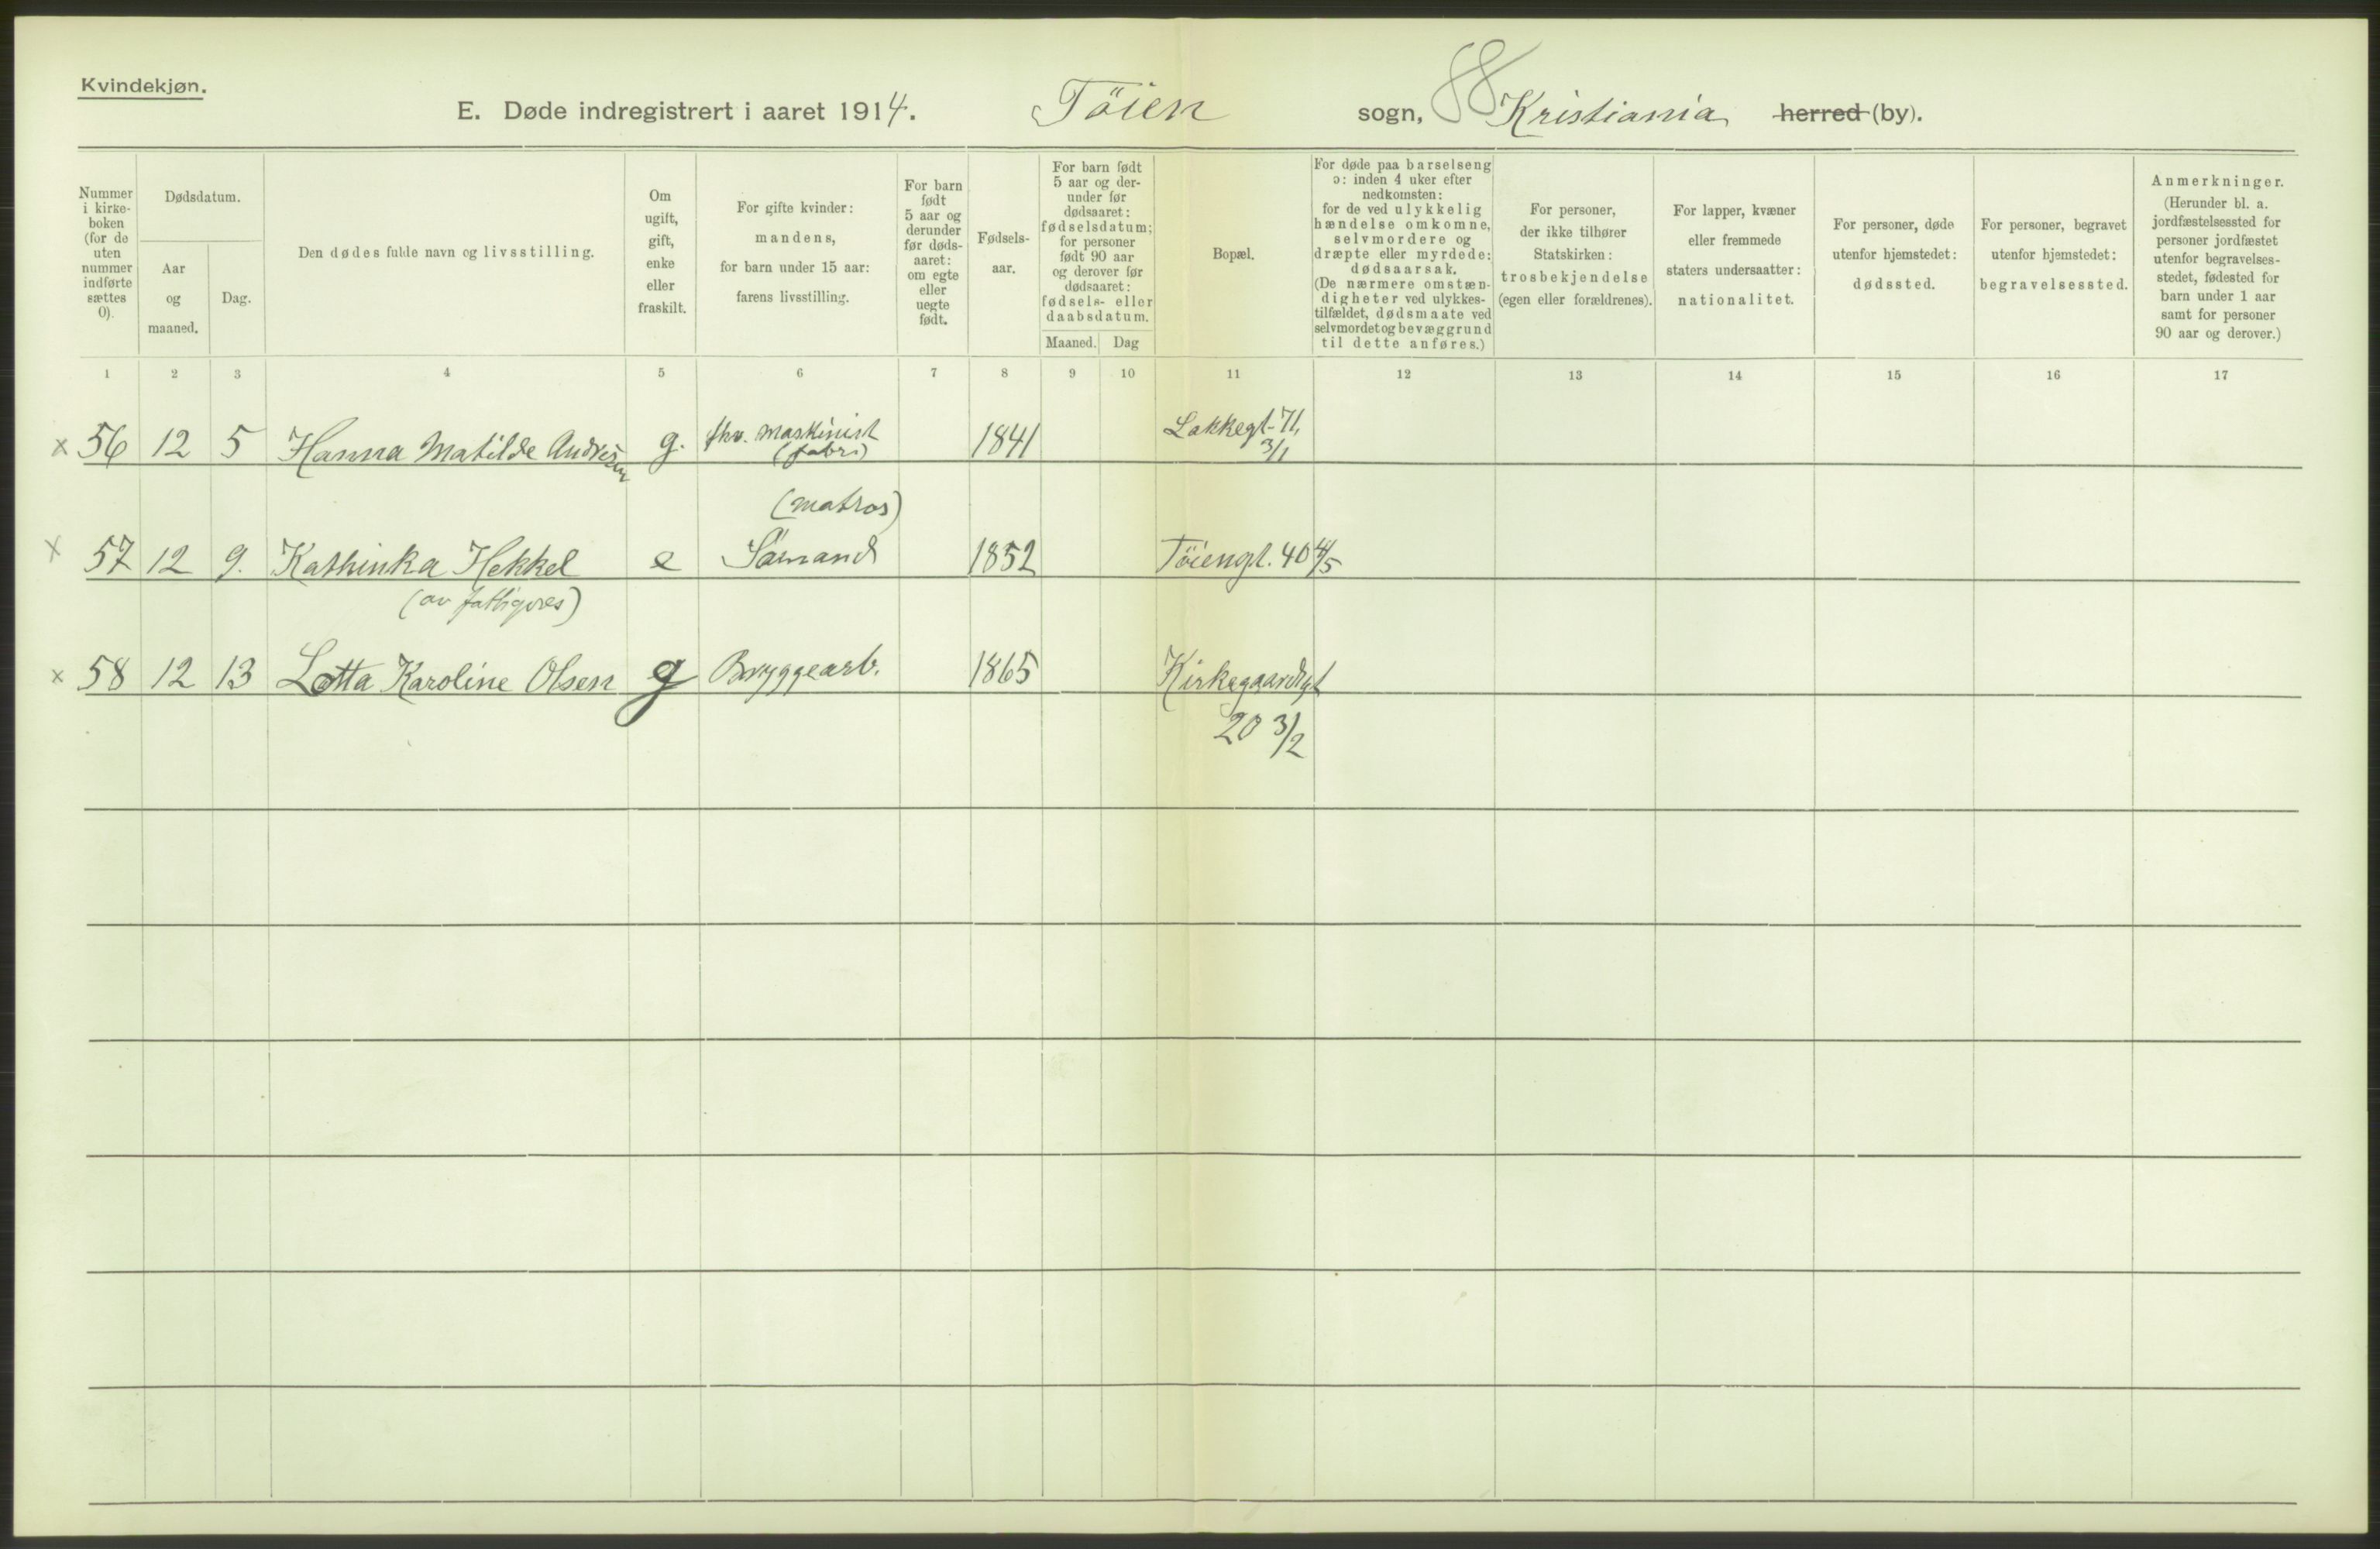 Kvindekjøn.
E. Døde indregistrert i aaret 1914. Töien sogn, 88 Kristiania herred (by).
Nummer i kirke-boken (for de uten nummer indførte sættes 0).
Dødsdatum.
Aar og maaned.
Dag.
Den dødes fulde navn og livsstilling.
Om ugift, gift, enke eller fraskilt.
For gifte kvinder: mandens, for barn under 15 aar: farens livsstilling.
For barn født 5 aar og derunder før døds-aaret: om egte eller uegte født.
Fødsels-aar.
For barn født 5 aar og der-under før dødsaaret: fødselsdatum; for personer født 90 aar og derover før dødsaaret: fødsels- eller daabsdatum.
Maaned. Dag
Bopæl.
For døde paa barselseng ɔ: inden 4 uker efter nedkomsten: for de ved ulykkelig hændelse omkomne, selvmordere og dræpte eller myrdede: dødsaarsak. (De nærmere omstæn-digheter ved ulykkes-tilfældet, dødsmaate ved selvmordet og bevæggrund til dette anføres.)
For personer, der ikke tilhører Statskirken: trosbekjendelse (egen eller forældrenes).
For lapper, kvæner eller fremmede staters undersaatter: nationalitet.
For personer, døde utenfor hjemstedet: dødssted.
For personer, begravet utenfor hjemstedet: begravelsessted.
Anmerkninger. (Herunder bl. a. jordfæstelsessted for personer jordfæstet utenfor begravelses-stedet, fødested for barn under 1 aar samt for personer 90 aar og derover.)
1 2 3 4 5 6 7 8 9 10 11 12 13 14 15 16 17
x 56 12 5 Hanna Matilde Andresen g. fhv. maskinist (fabr.) 1841 Lakkegt. 71, 3/1
(matros)
x 57 12 9. Kathinka Hekkel e Sömand 1852 Töiengt. 40 4/5
(av fattigves)
x 58 12 13 Lotta Karoline Olsen g Bryggearb. 1865 Kirkegaardsgt
20 3/2